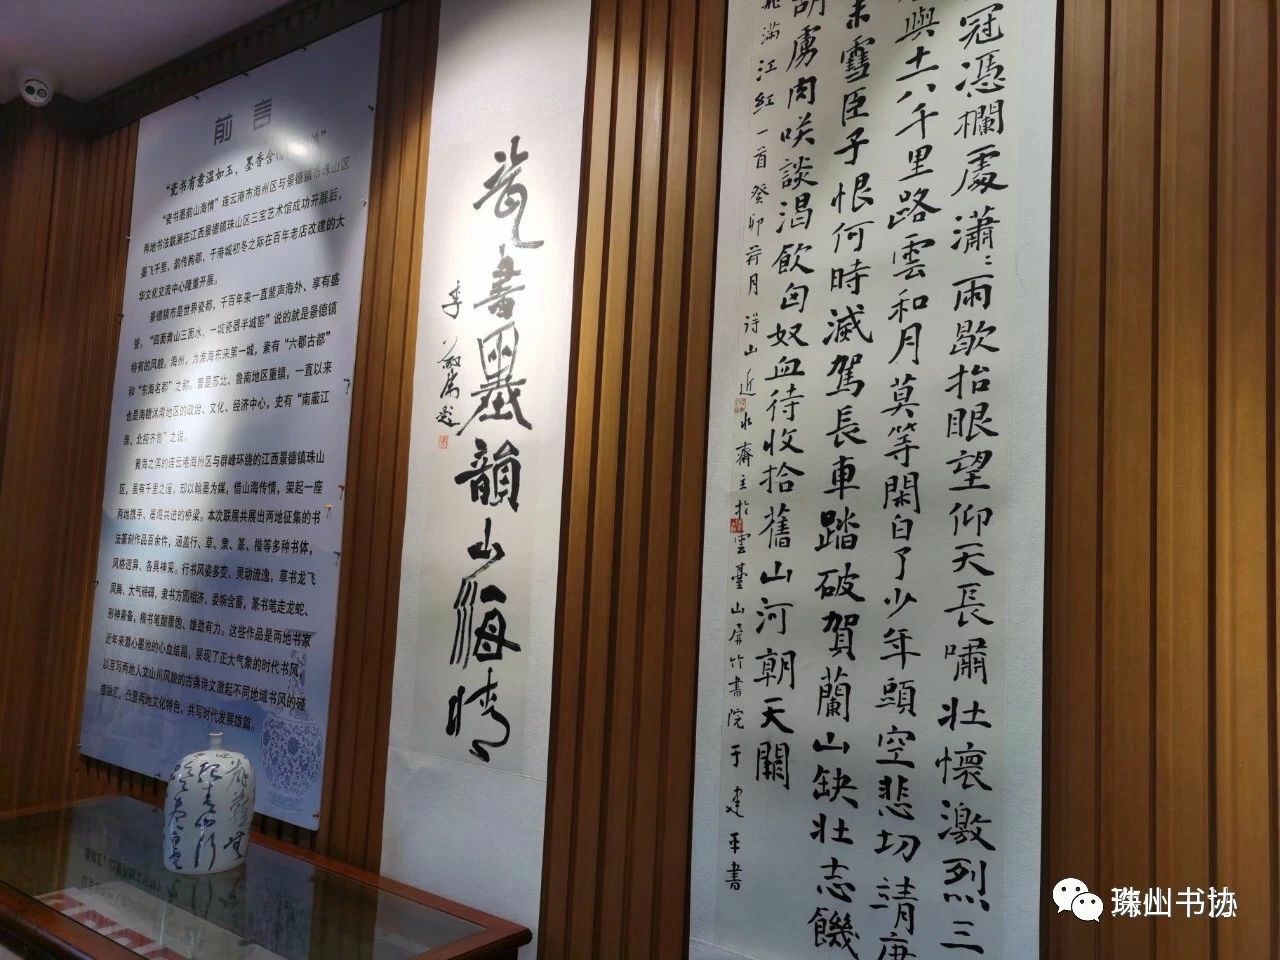 前言
"瓷书有意温如玉，墨香含
"瓷书墨韵山海情"连云港市海州区与景德镇市珠山区
两地书法联展在江西景德镇珠山区三宝艺术馆成功开展后，
墨飞千里、韵传朐郡，于港城初冬之际在百年老店改建的大
华文化交流中心隆重开展。
景德镇市是世界瓷都，千百年来一直蜚声海外、享有盛
誉。"四面青山三面水，一城瓷器半城窑"说的就是景德镇
特有的风貌。海州，为淮海东来第一城，素有"六郡古都"
和"东海名郡"之称。曾是苏北、鲁南地区重镇，一直以来
也是海赣沭灌地区的政治、文化、经济中心，史有"南蔽江
淮、北控齐鲁"之说。
黄海之滨的连云港海州区与群峰环绕的江西景德镇珠山
区，虽有千里之遥，却以翰墨为媒，借山海传情，架起一座
两地携手、墨海共进的桥梁。本次联展共展出两地征集的书
法篆刻作品百余件，涵盖行、草、隶、篆、楷等多种书体，
风格迥异、各具神采。行书风姿多变、灵动流逸，草书龙飞
凤舞、大气磅礴，隶书方圆相济、委婉含蓄，篆书笔走龙蛇、
形神兼备，楷书笔酣墨饱、雄劲有力。这些作品是两地书家
近年来潜心墨池的心血结晶，展现了正大气象的时代书风，
以互写两地人文山川风貌的古典诗文激起不同地域书风的碰
撞融汇，凸显两地文化特色，共写时代发展雄篇。
瓷书墨韻山海情
李敬偉題
冠憑欄處瀟瀟雨歇抬眼望仰天長嘯壯懷激烈三
與土八千里路雲和月莫等閑白了少年頭空悲切靖康
未雪臣子恨何時滅駕長車踏破賀蘭山缺壯志饑
胡虜肉笑談渴飲匈奴血待收拾舊山河朝天闕
滿江紅一首癸卯荷月詩山近水齋主於雲臺山屏竹書院于建平書
珠山书协